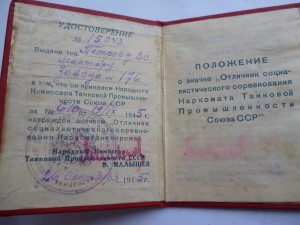 УДОСТОВЕРЕНИЕ
№ 15043
Выдано тов.
завода № 176
в том, что он приказом Народного
Комиссара Танковой Промышлен-
ности Союза ССР
за № 1945 г.
награжден значком „Отличник
социалистического соревнования
Наркомтанкопрома“
Народный Комиссар
Танковой Промышленности СССР
В. МАЛЫШЕВ
1945 г.
ПОЛОЖЕНИЕ
о значке „Отличник социа-
листического соревнования
Наркомата Танковой
Промышленности
Союза ССР“